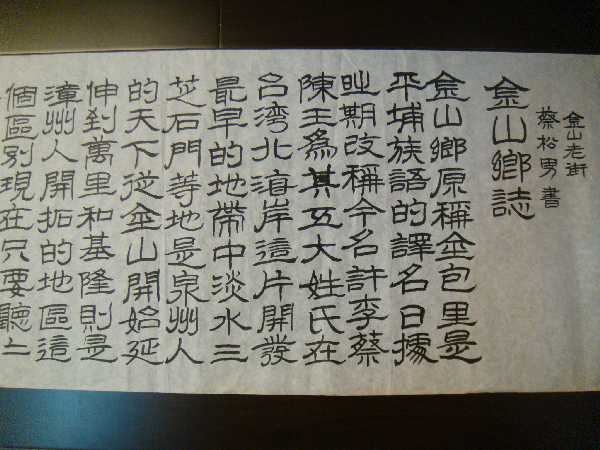 金山老街
蔡松男書
金山鄉誌
金山鄉原稱金包里是
平埔族語的譯名日據
時期改稱今名許李蔡
陳王為其五大姓氏在
台湾北海岸這片開發
最早的地帶中淡水三
芝石門等地是泉州人
的天下從金山開始延
伸到萬里和基隆則是
漳州人開拓的地區這
個區別現在只要聽上